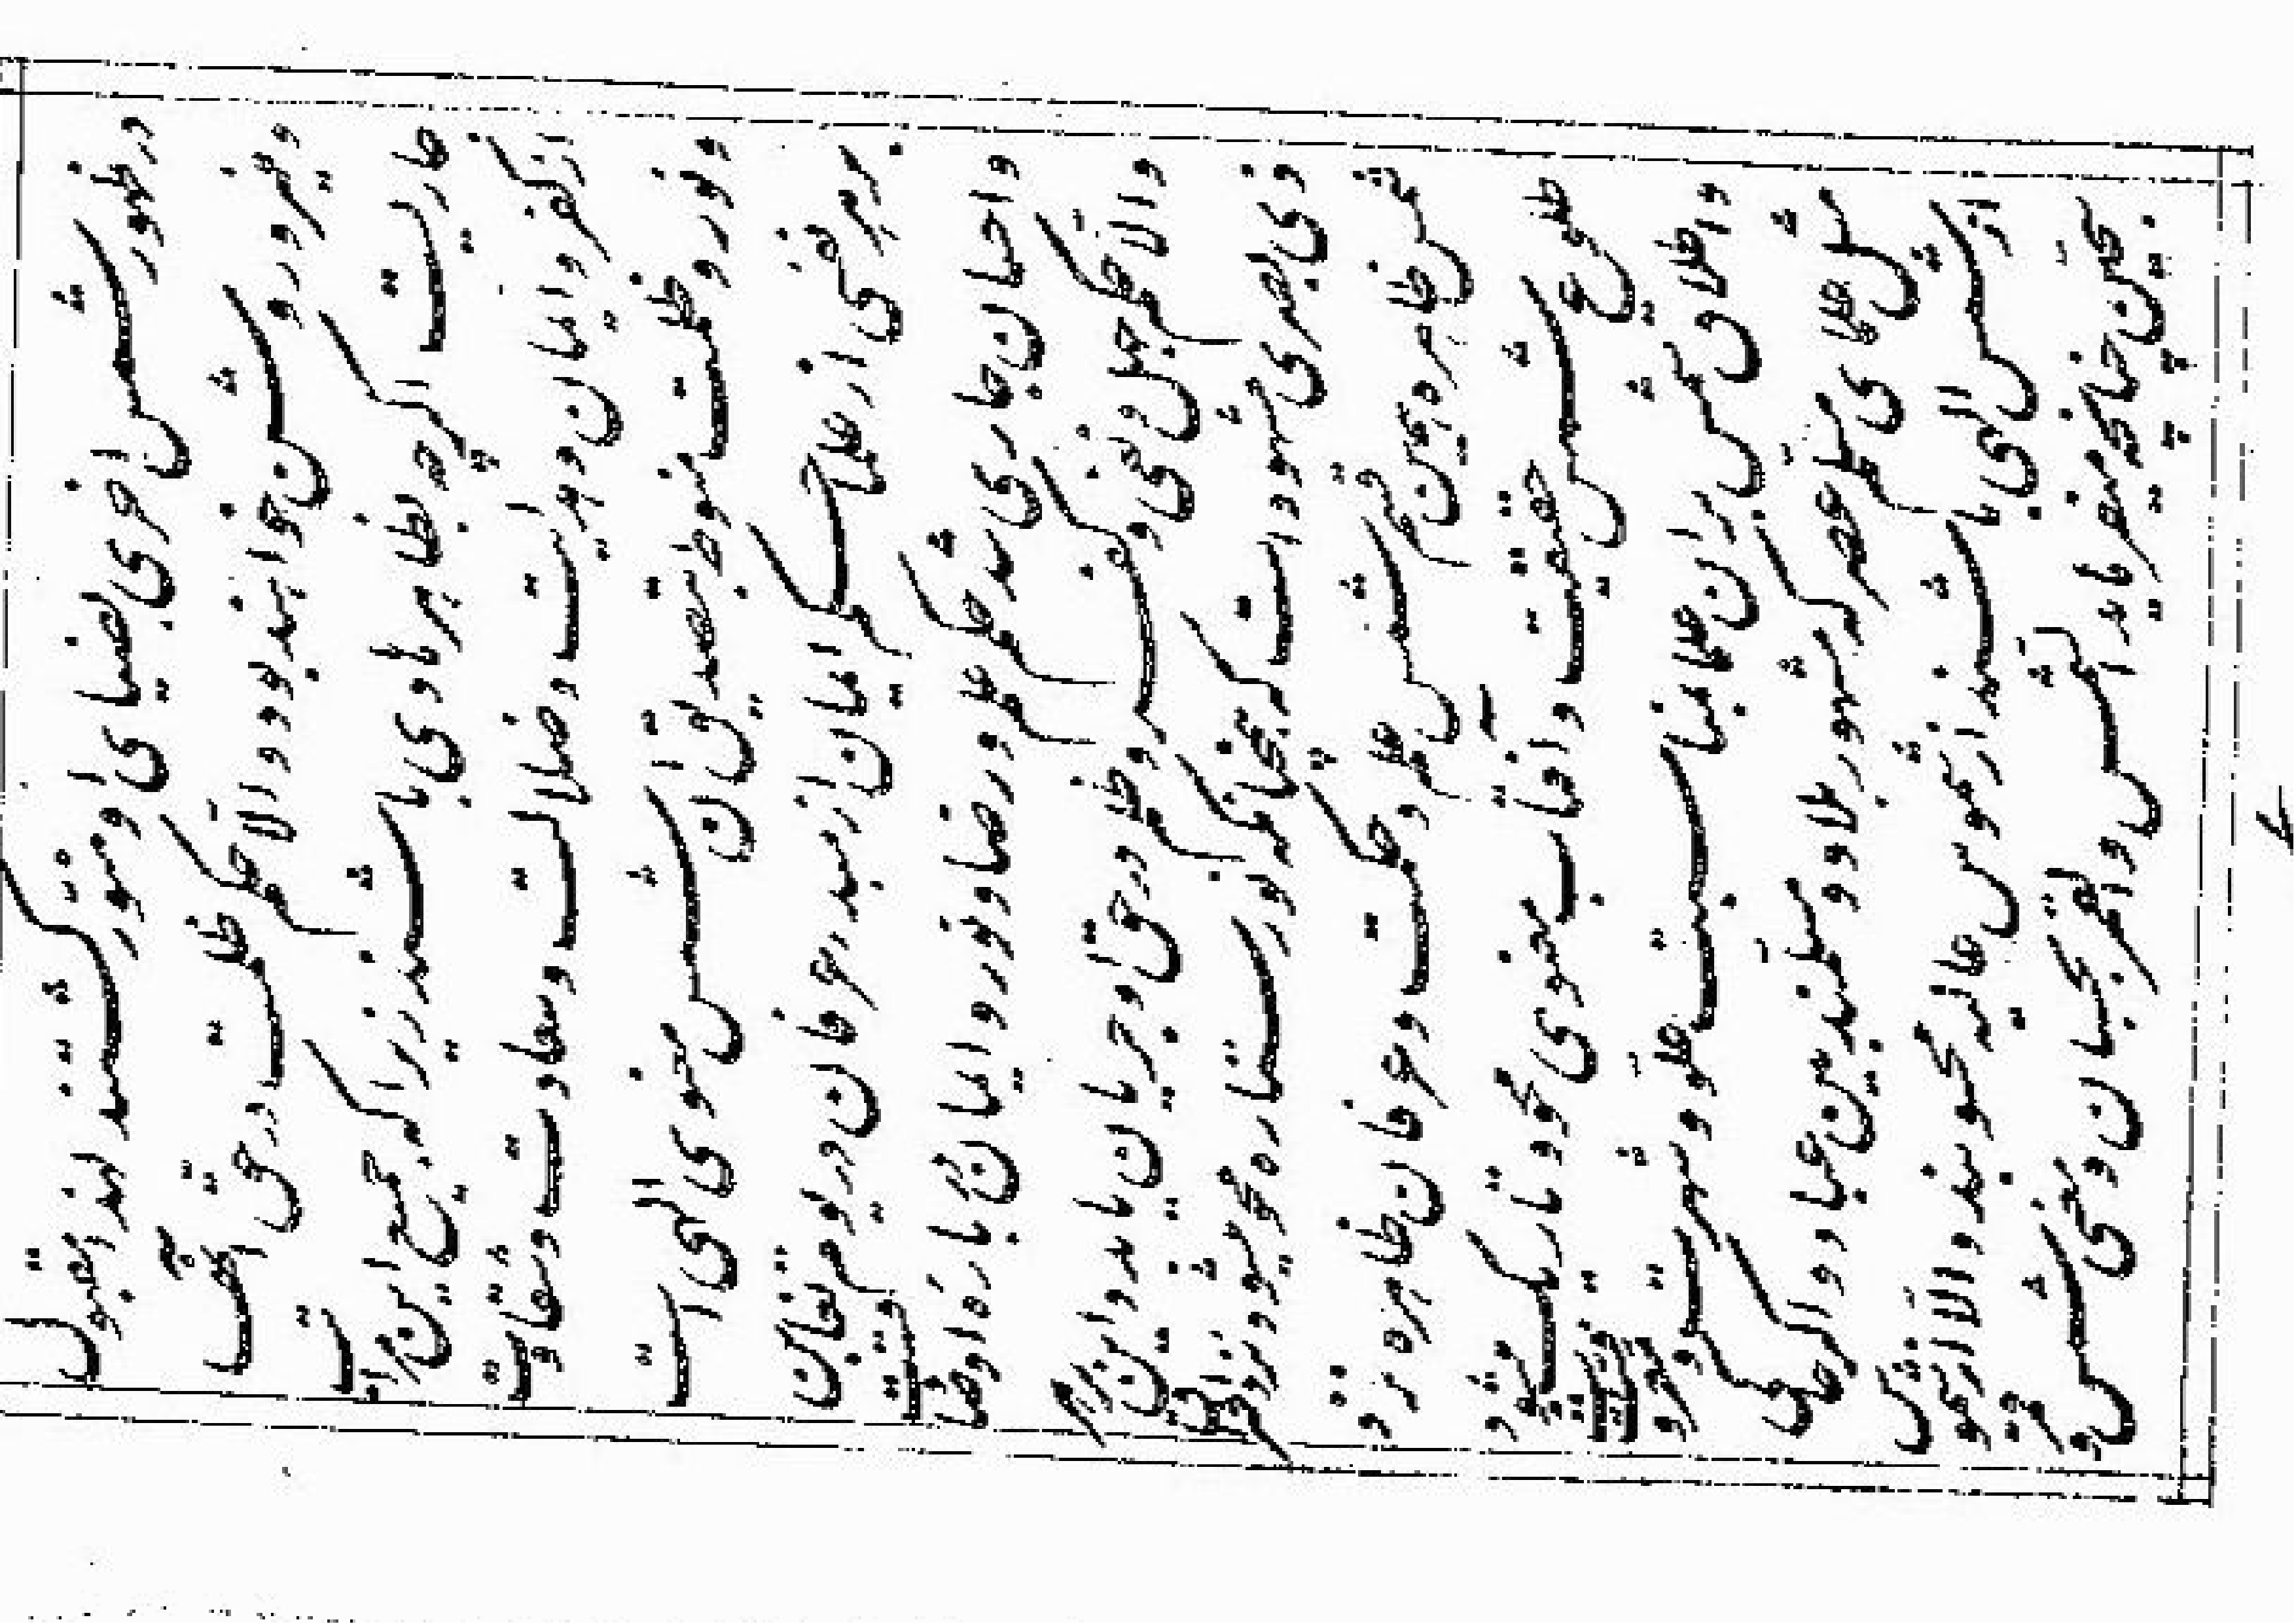 در ظهور شمس اخری بضیای او منور گشته‌اند مقبول
و منیر و روشن خواهند بود و الا حکم ظلمت در حق آنها
جاریست اگر چه بظاهر هادی باشند زیرا که جمیع این مراتب
از کفر و ایمان و هدایت و ضلالت و سعادت و شقاوت
و نور و ظلمت منوط بتصدیق آن شمس معنوی الهی است
بر هر نفسی از علما حکم ایمان از مبدء عرفان در یوم تغابن
و احسان جاری شد حکم علم و رضا و نور و ایمان درباره او صادق است
و الا حکم جهل و نفی و کفر و ظلم در حق او جریان یابد و این بر هر
ذی بصری مشهود است که همچنانکه نور ستاره محو میشود نزد اشراق
شمس ظاهره همین قسم شمس علم و حکمت و عرفان ظاهره نزد
طلوع شمس حقیقت و آفتاب معنوی محو و تاریک میشود
و اطلاق شمس بر آن علما بمناسبت علو و شهرت و معروفیت است
مثل علمای مسلم عصر که مشهور بلاد و مسلمند بین عباد و اگر حاکی
از شمس الهی باشند از شموس عالیه محسوبند و الا از شموس
سجین چنانچه میفرماید الشمس و القمر بحسبان و معنی شمس و قمر